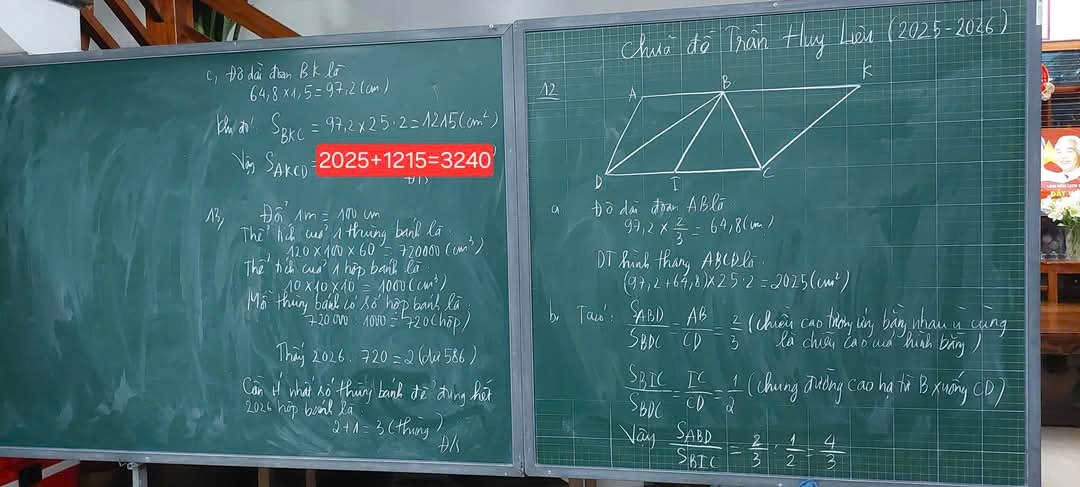 c, Độ dài đoạn BK là
64,8 x 1,5 = 97,2 (cm)
Khi đó: S_BKC = 97,2 x 25 : 2 = 1215 (cm²)
Vậy S_AKCD = 2025+1215=3240
Đ/S
13, Đổi 1m = 100 cm
Thể tích của 1 thùng bánh là
120 x 100 x 60 = 720000 (cm³)
Thể tích của 1 hộp bánh là
10 x 10 x 10 = 1000 (cm³)
Mỗi thùng bánh có số hộp bánh là
720000 : 1000 = 720 (hộp)
Thấy 2026 : 720 = 2 (dư 586)
Cần ít nhất số thùng bánh để đựng hết
2026 hộp bánh là
2 + 1 = 3 (thùng)
Đ/S
Chữa đề Trần Huy Liệu (2025-2026)
12
A B K
D I C
a Độ dài đoạn AB là
97,2 x 2/3 = 64,8 (cm)
DT hình thang ABCD là
(97,2 + 64,8) x 25 : 2 = 2025 (cm²)
b, Ta có: S_ABD/S_BDC = AB/CD = 2/3 (chiều cao tương ứng bằng nhau vì cùng
là chiều cao của hình thang)
S_BIC/S_BDC = IC/CD = 1/2 (chung đường cao hạ từ B xuống CD)
Vậy S_ABD/S_BIC = 2/3 : 1/2 = 4/3